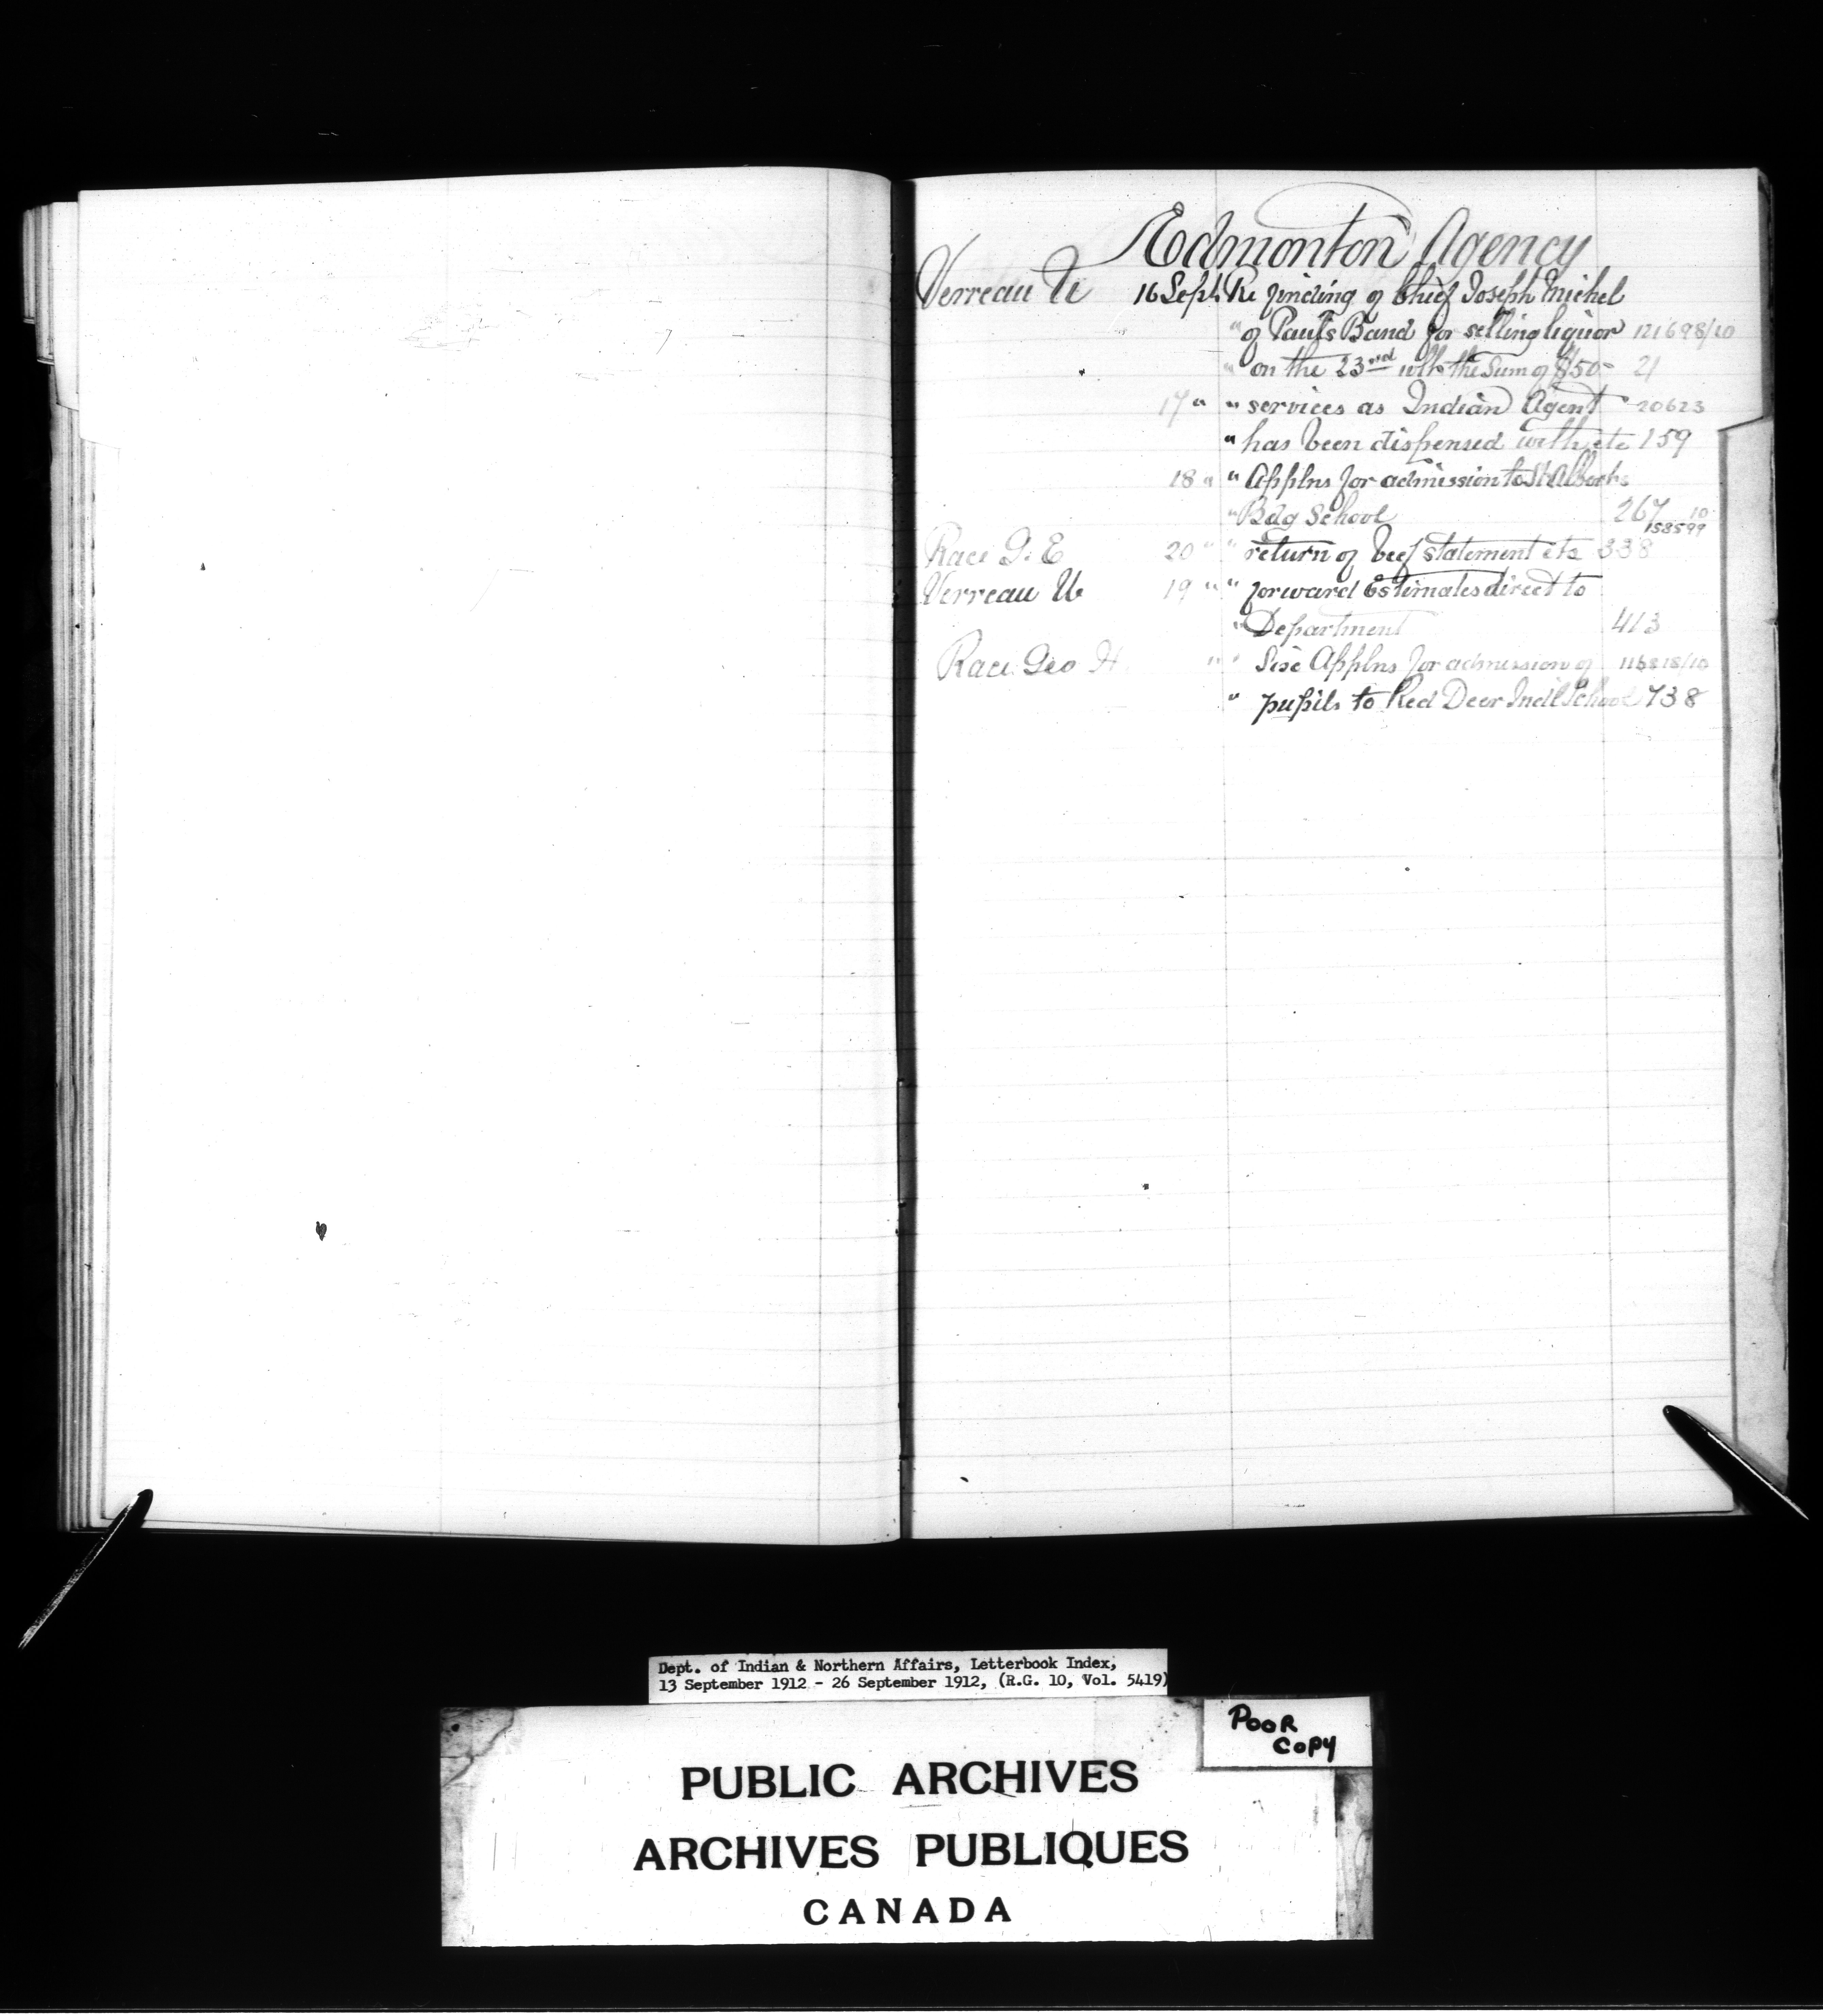 Edmonton Agency
Verreau U 16 Sept Re finding of Chief Joseph Michel
" of Paul's Band for selling liquor 121698/10
" on the 23rd ulto the Sum of $50- 21
17 " " services as Indian Agent 20623
" has been dispensed with etc 159
18 " " Applns for admission to St Alberts
" Bdg School 267
10
158599
Race G. E 20 " " return of beef statement etc 338
Verreau U 19 " " forward Estimates direct to
" Department 413
Race Geo H. " " Six Applns for admission of 116818/10
" pupils to Red Deer Indl School 738
Dept. of Indian & Northern Affairs, Letterbook Index,
13 September 1912 - 26 September 1912, (R.G. 10, Vol. 5419)
POOR
COPY
PUBLIC ARCHIVES
ARCHIVES PUBLIQUES
CANADA